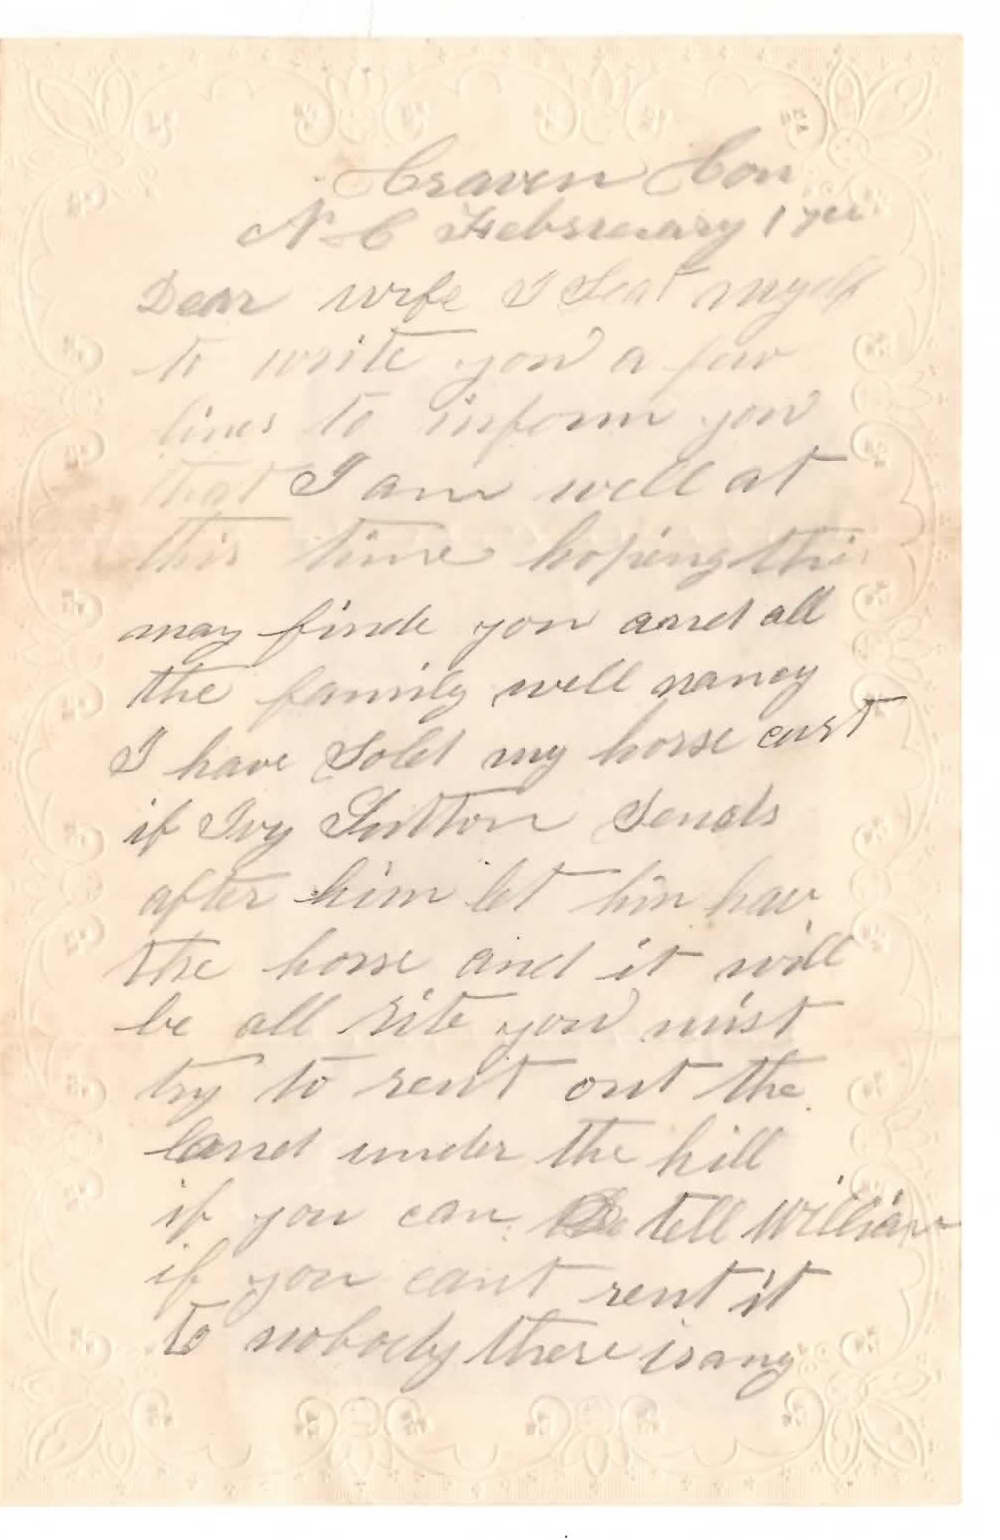 Craven Cou
N C Febsreuary 1
Dear wife I Seat myself
to write you a few
lines to inform you
that I am well at
this time hoping this
may finde you and all
the family well nancy
I have Sold my horse
if Ivy Sutton Sends
after him let him have
the horse and it will
be all rite you must
try to rent out the
land under the hill
if you can tell William
if you cant rent it
to nobody there is any